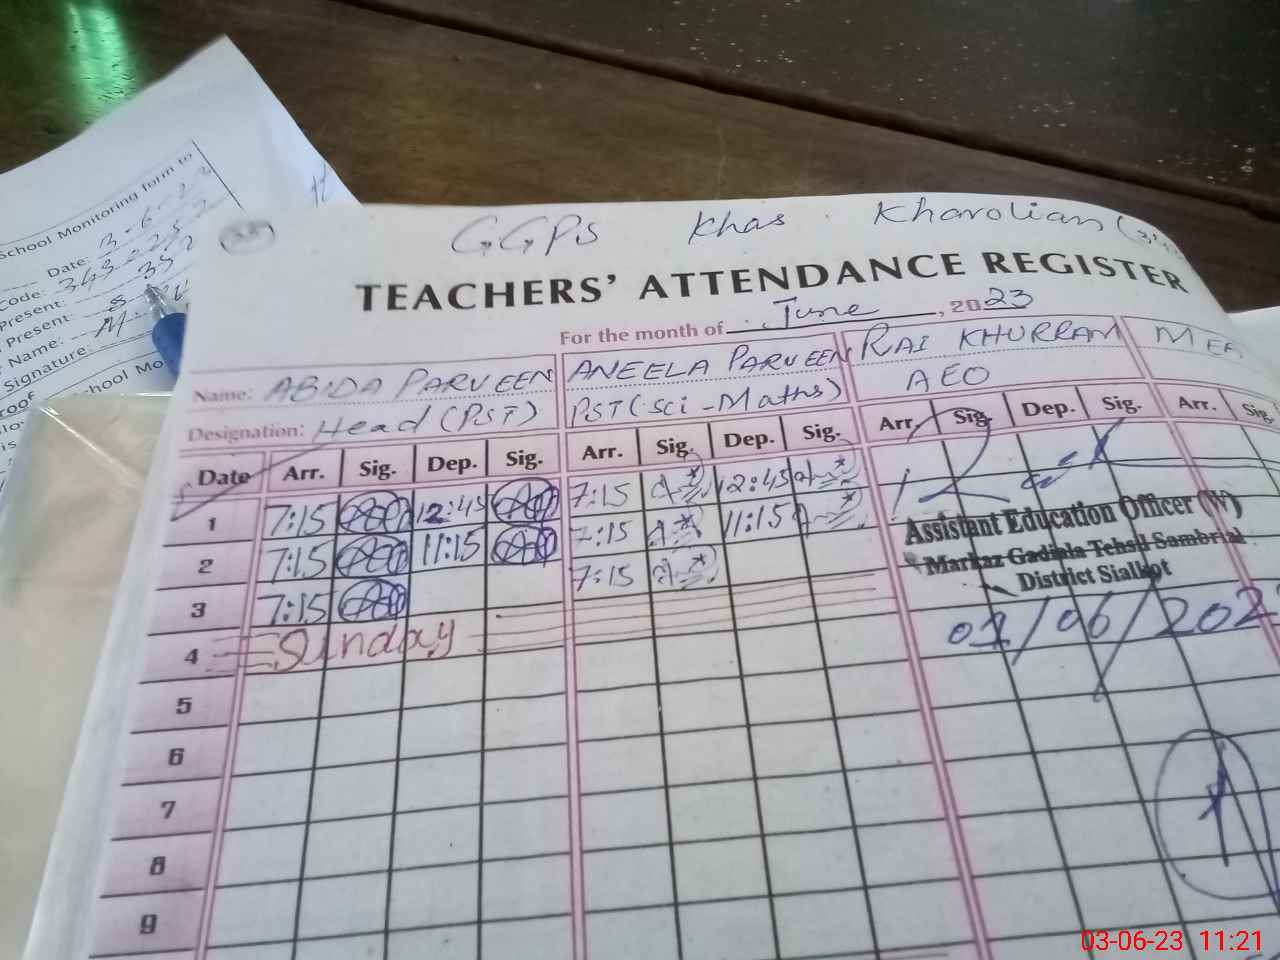 School Monitoring form to
Date: 3-6-23
Code:
Present: 352
Present: 8
Name:
Signature:
GGPS Khas Kharolian (34
TEACHERS' ATTENDANCE REGISTER
For the month of June, 2023
Name: ABIDA PARVEEN ANEELA PARVEEN RAI KHURRAM
Designation: Head (PST) PST (Sci-Maths) AEO
Date Arr. Sig. Dep. Sig. Arr. Sig. Dep. Sig. Arr. Sig. Dep. Sig. Arr. Sig.
1 7:15 12:45 7:15 12:45
2 7:15 11:15 7:15 11:15
3 7:15 7:15
4 Sunday
5
6
7
8
9
Assistant Education Officer (W)
Markaz Gadiala Tehsil Sambrial
District Sialkot
01/06/202
03-06-23 11:21